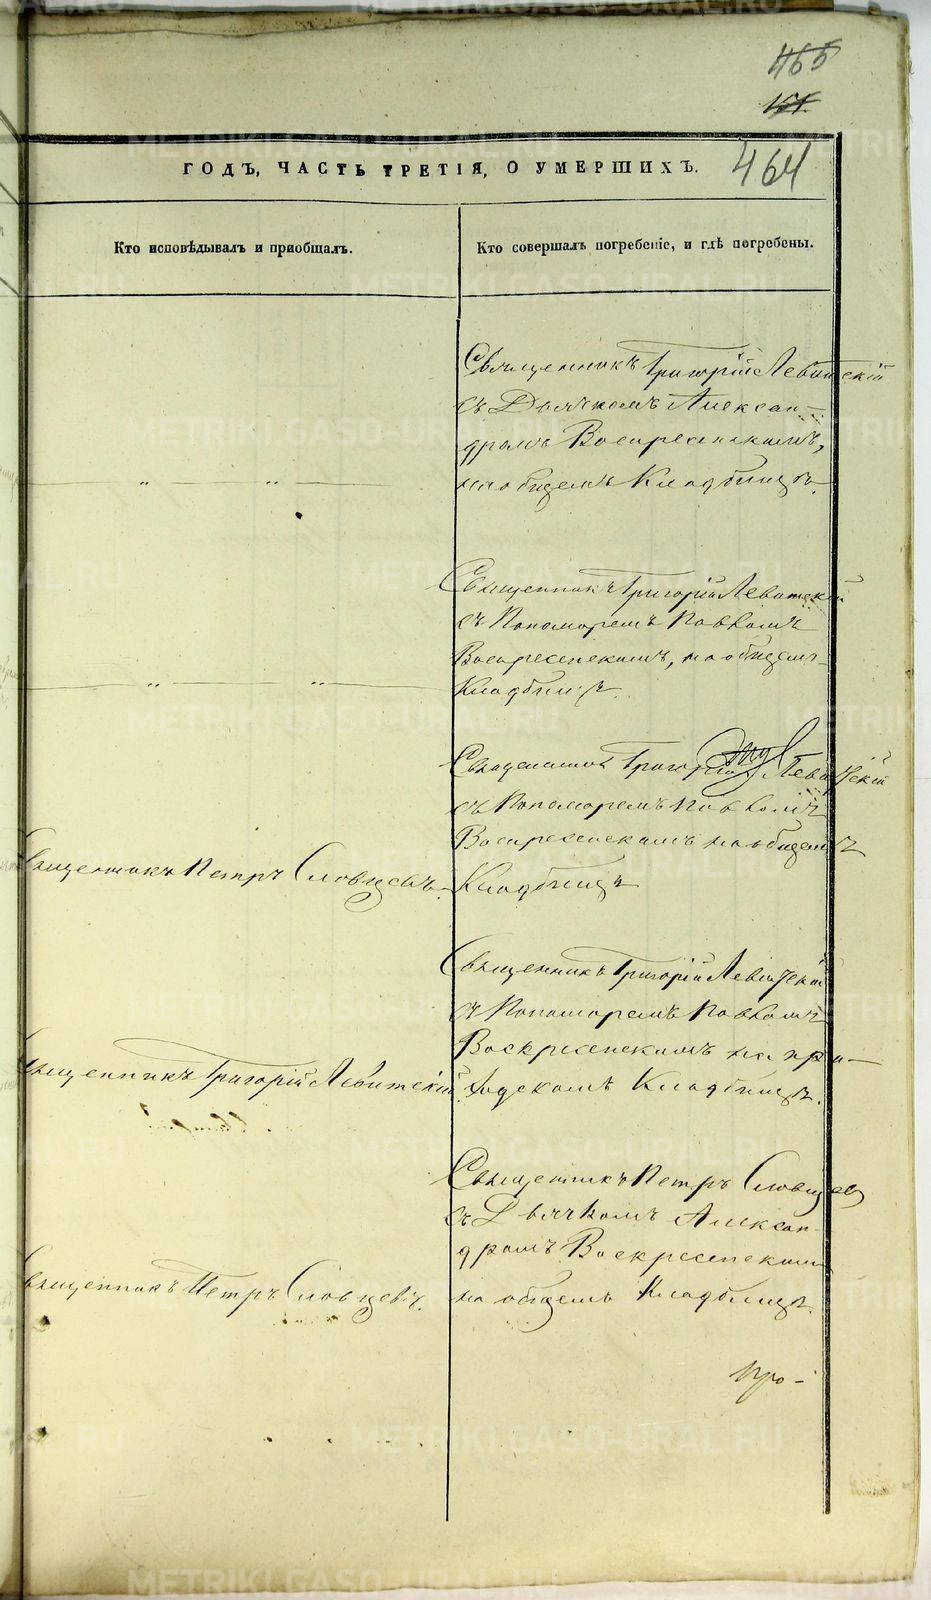 465
464
ГОДЪ, ЧАСТЬ ТРЕТІЯ, О УМЕРШИХЪ.
Кто исповѣдывалъ и приобщалъ.
Кто совершалъ погребеніе, и гдѣ погребены.
Священникъ Григорій Левитскій
съ Дьячкомъ Алексан-
дромъ Воскресенскимъ,
на общемъ Кладбищѣ.
„ „
Священникъ Григорій Левитскій
съ Пономаремъ Павломъ
Воскресенскимъ, на общемъ
Кладбищѣ.
„ „
Священникъ Григорій Левитскій
съ Пономаремъ Павломъ
Воскресенскимъ на общемъ
Кладбищѣ
Священникъ Петръ Словцевъ.
Священникъ Григорій Левитскій
съ Пономаремъ Павломъ
Воскресенскимъ на при-
ходскомъ Кладбищѣ.
Священникъ Григорій Левитскій.
Священникъ Петръ Словцев
съ Дьячкомъ Алексан-
дромъ Воскресенским
на общемъ Кладбищѣ.
Священникъ Петръ Словцевъ.
Про-
METRIKI.GASO-URAL.RU